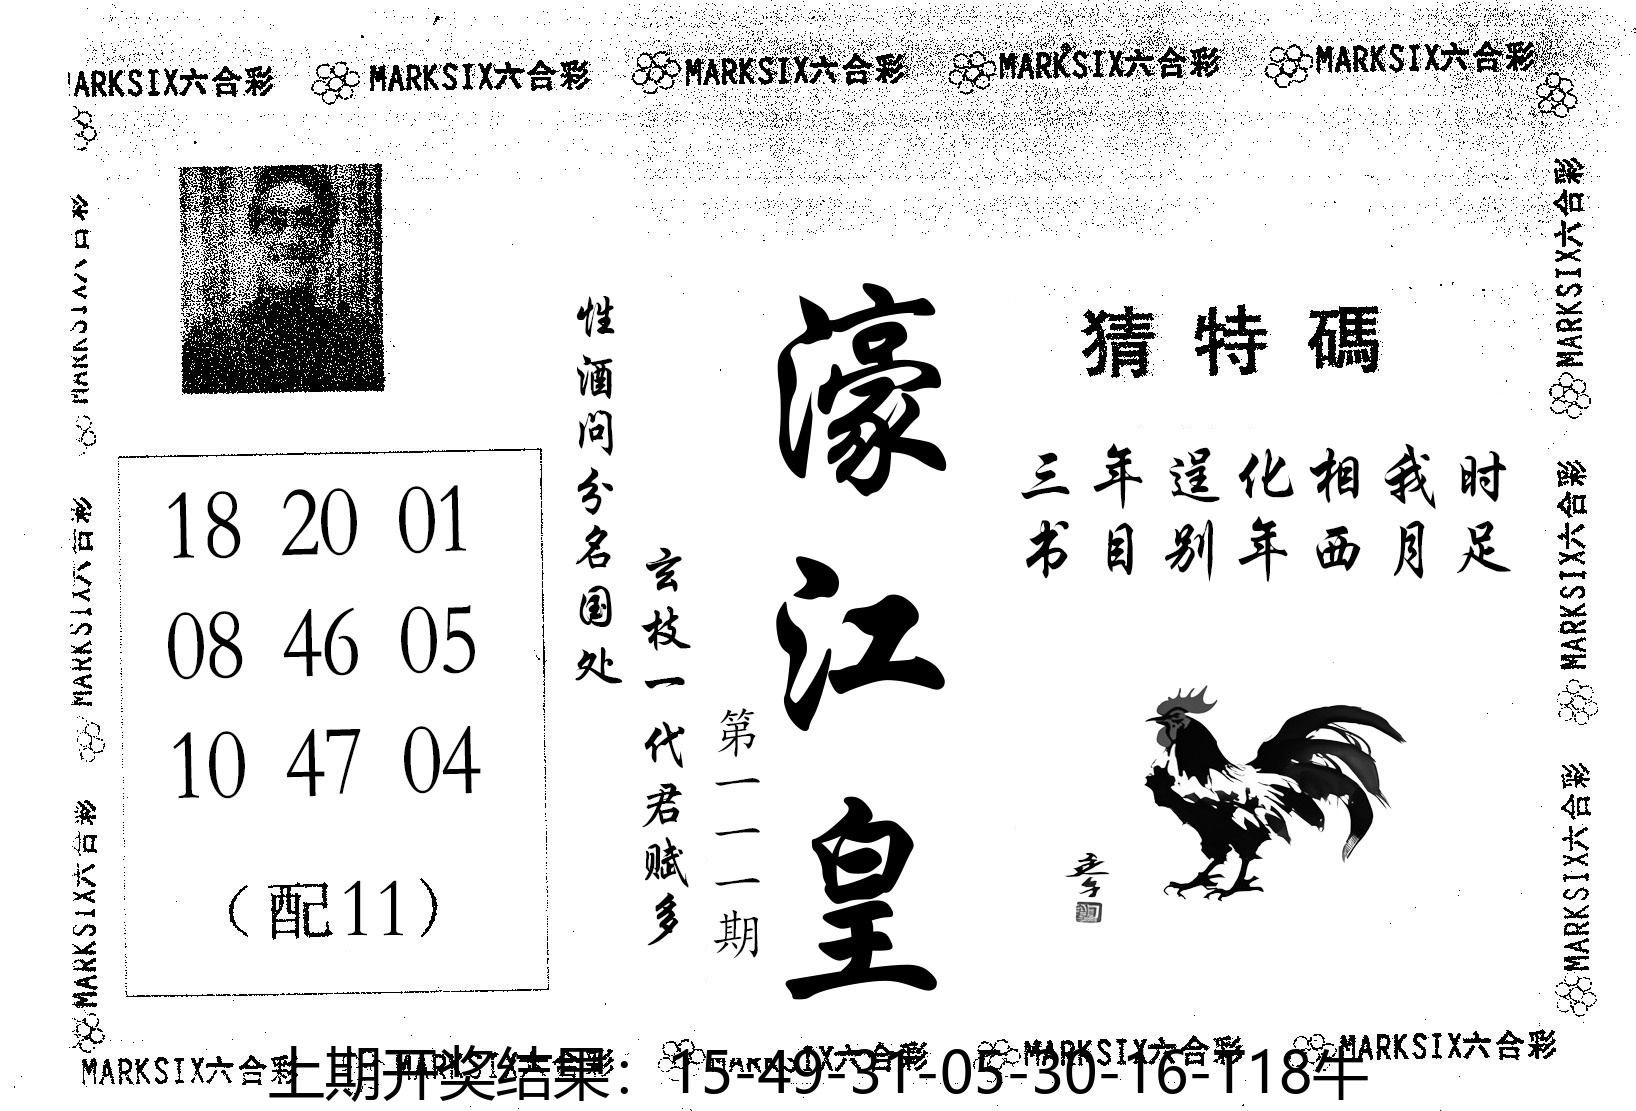 MARKSIX六合彩 MARKSIX六合彩 MARKSIX六合彩 MARKSIX六合彩 MARKSIX六合彩
猜特碼
三年逞化相我时
书目别年西月足
濠江皇
第一一一期
玄枝一代君赋多
性酒问分名国处
18 20 01
08 46 05
10 47 04
（配11）
MARKSIX六合彩
MARKSIX六合彩
MARKSIX六合彩
MARKSIX六合彩
MARKSIX六合彩
MARKSIX六合彩
MARKSIX六合彩 MARKSIX六合彩 MARKSIX六合彩 MARKSIX六合彩 MARKSIX六合彩
上期开奖结果：15-49-31-05-30-16-T18牛